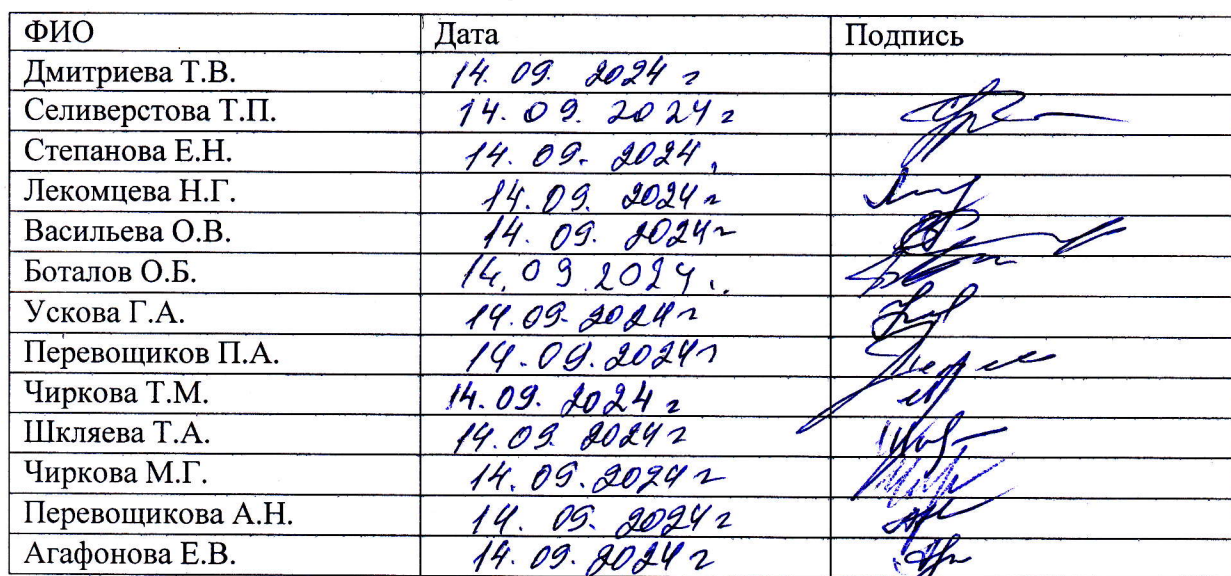 ФИО Дата Подпись
Дмитриева Т.В. 14. 09. 2024 г
Селиверстова Т.П. 14. 09. 2024 г
Степанова Е.Н. 14. 09. 2024
Лекомцева Н.Г. 14. 09. 2024 г
Васильева О.В. 14. 09. 2024 г
Боталов О.Б. 14. 09 2024 г.
Ускова Г.А. 14. 09. 2024 г
Перевощиков П.А. 14. 09. 2024 г
Чиркова Т.М. 14. 09. 2024 г
Шкляева Т.А. 14. 09. 2024 г
Чиркова М.Г. 14. 09. 2024 г
Перевощикова А.Н. 14. 09. 2024 г
Агафонова Е.В. 14. 09. 2024 г